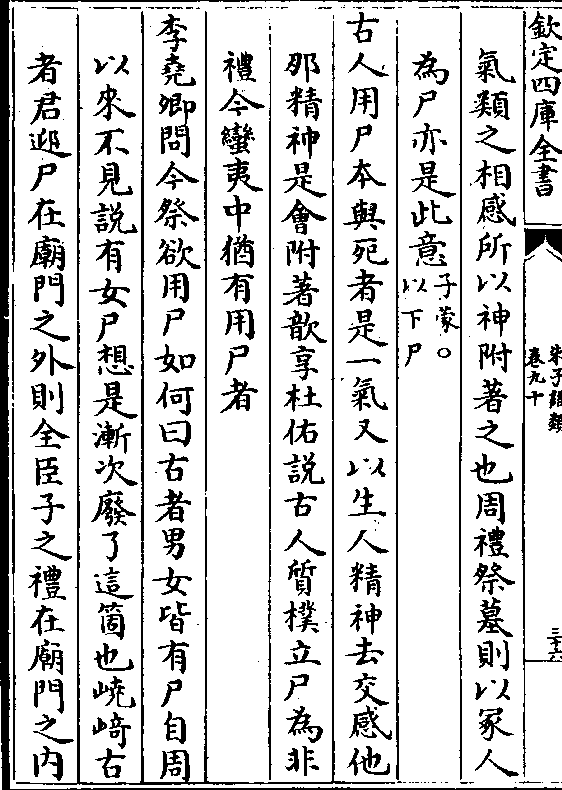 欽定四庫全書
朱子語類
卷九十
三十六
氣類之相感所以神附著之也周禮祭墓則以冢人
為尸亦是此意子蒙○
以下尸
古人用尸本與死者是一氣又以生人精神去交感他
那精神是會附著歆享杜佑說古人質樸立尸為非
禮今蠻夷中猶有用尸者
李堯卿問今祭欲用尸如何曰古者男女皆有尸自周
以來不見說有女尸想是漸次廢了這箇也嶢﨑古
者君迎尸在廟門之外則全臣子之禮在廟門之內